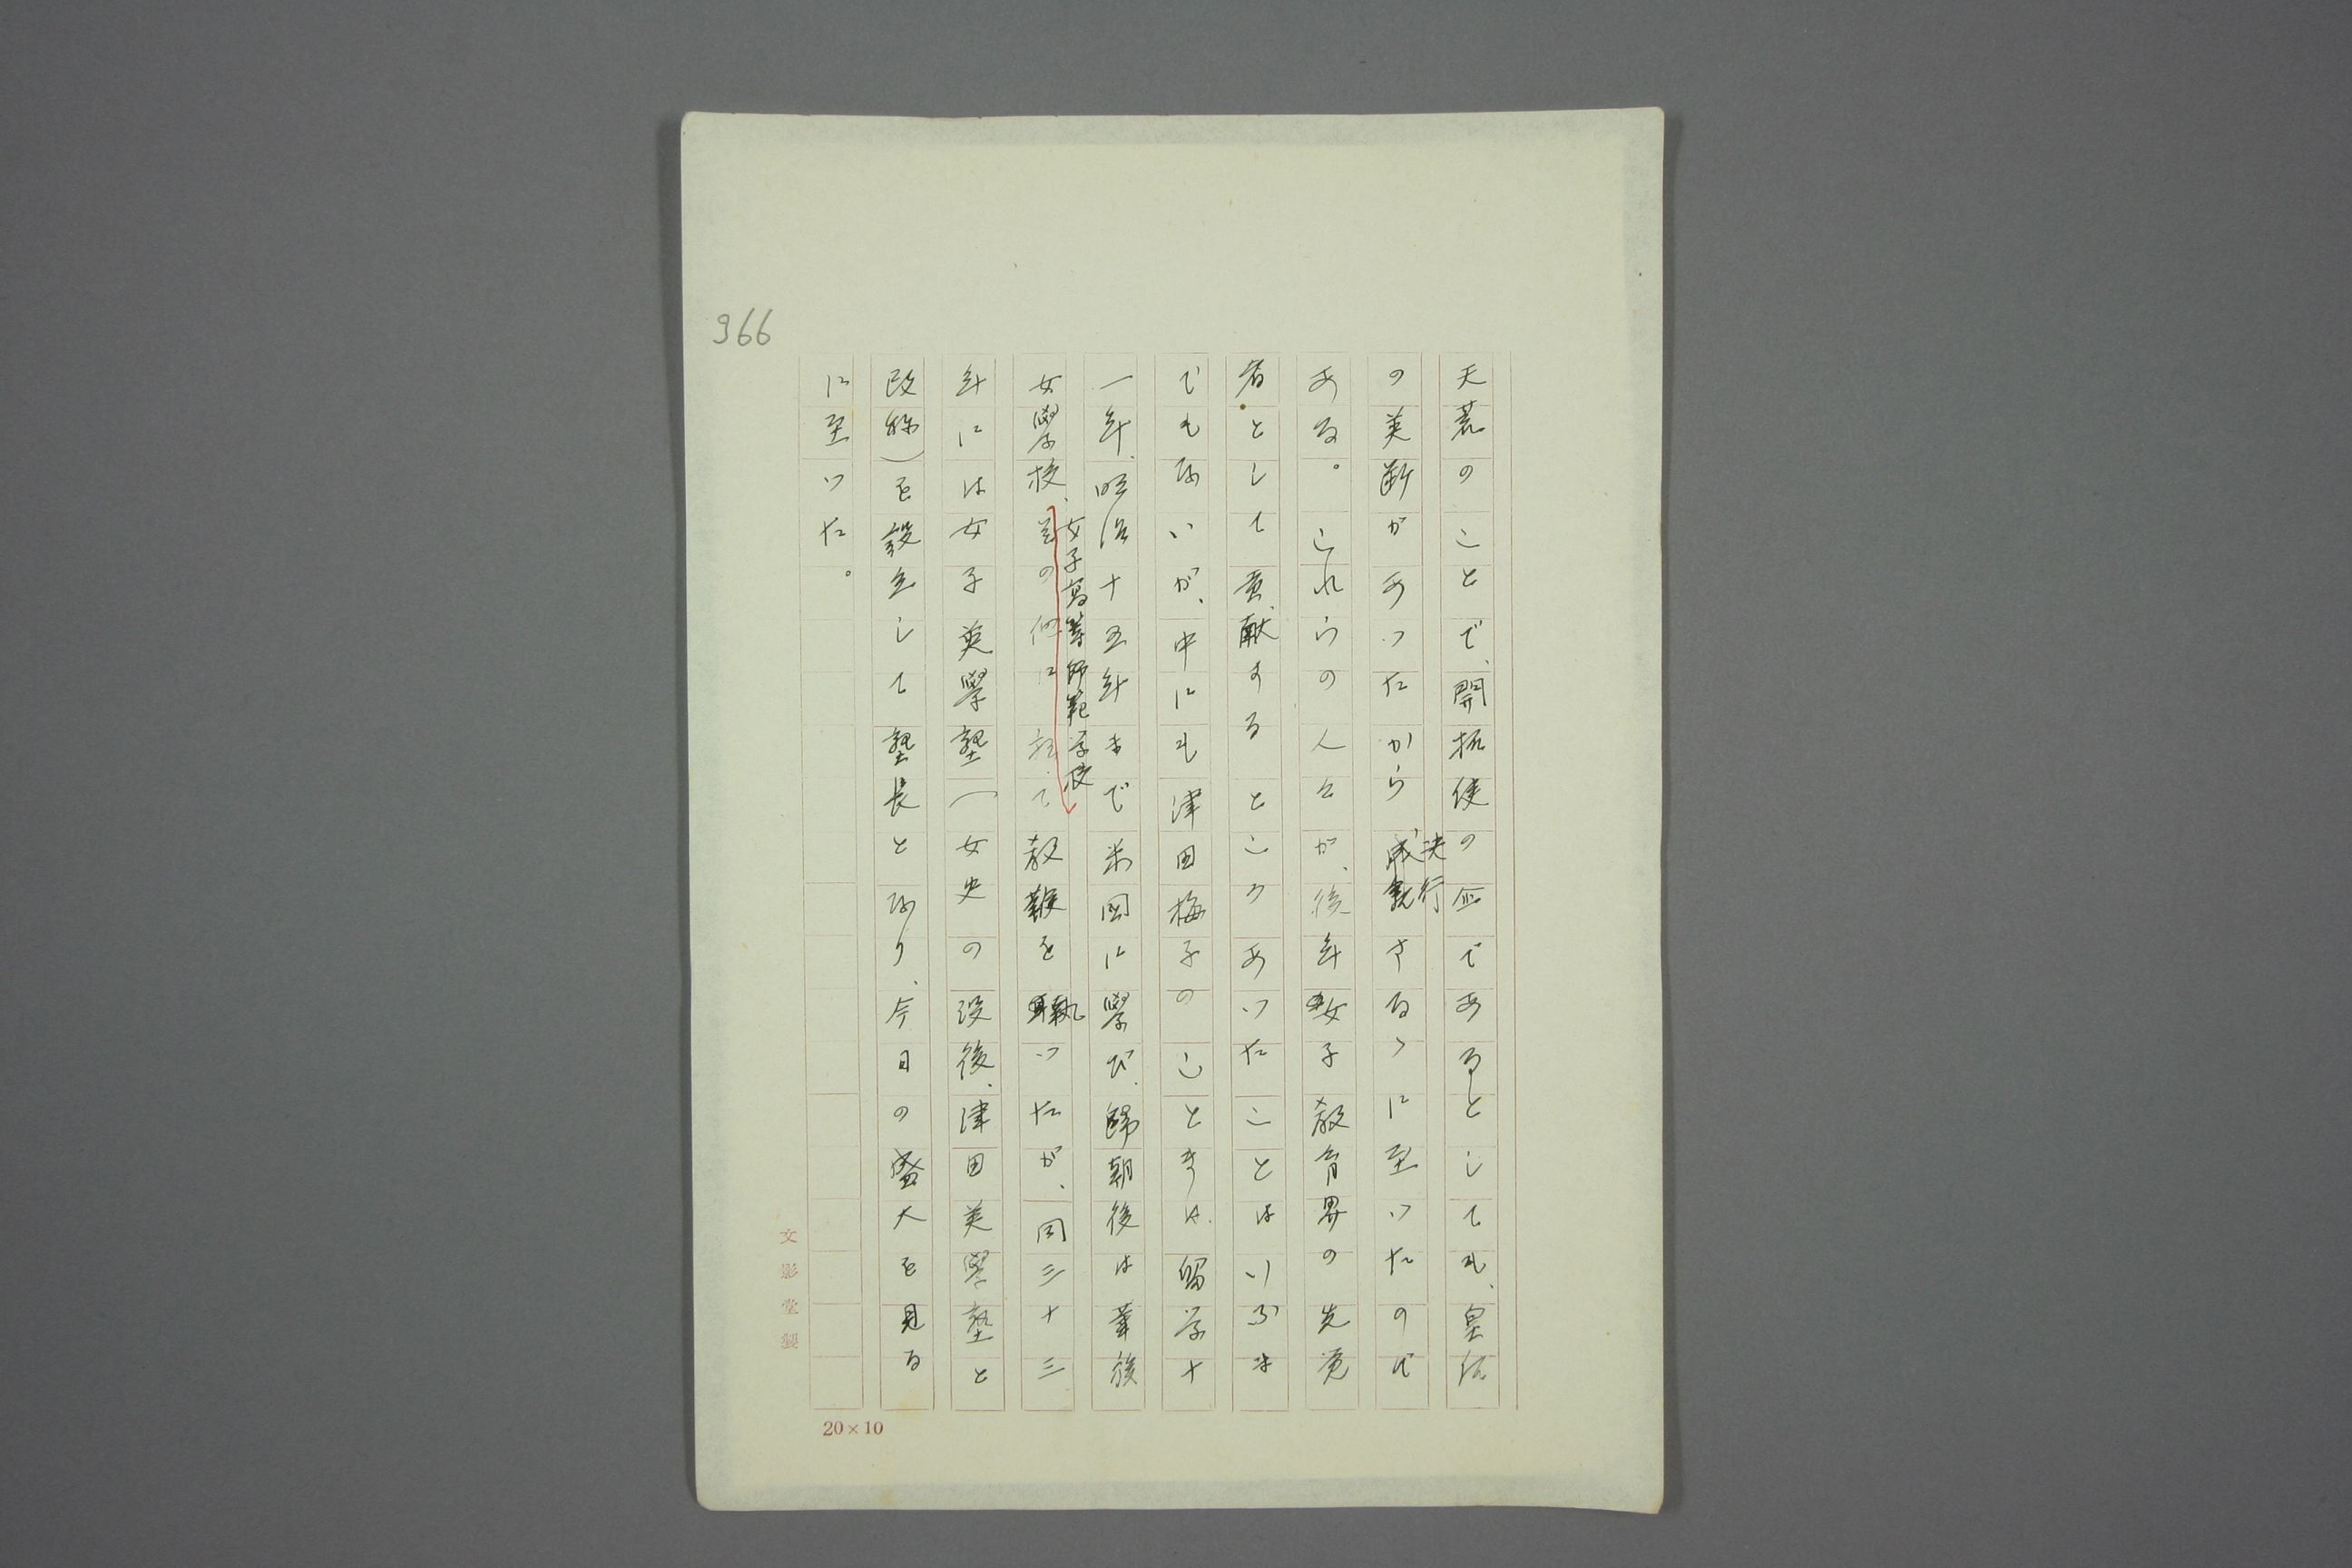 天荒のことで、開拓使の企であるとしても、皇后
の英断があつたから決行さるゝに至つたので
ある。これらの人々が、後年女子教育界の先覚
者として貢献するところあつたことはいふま
でもないが、中にも津田梅子のごときは、留学十
一年、明治十五年まで米国に學び、歸朝後は華族
女學校、女子高等師範学校
教鞭を執つたが、同三十三
年には女子英學塾（女史の没後、津田英學塾と
改称）を設立して塾長となり、今日の盛大を見る
に至つた。
966
文影堂製
20×10